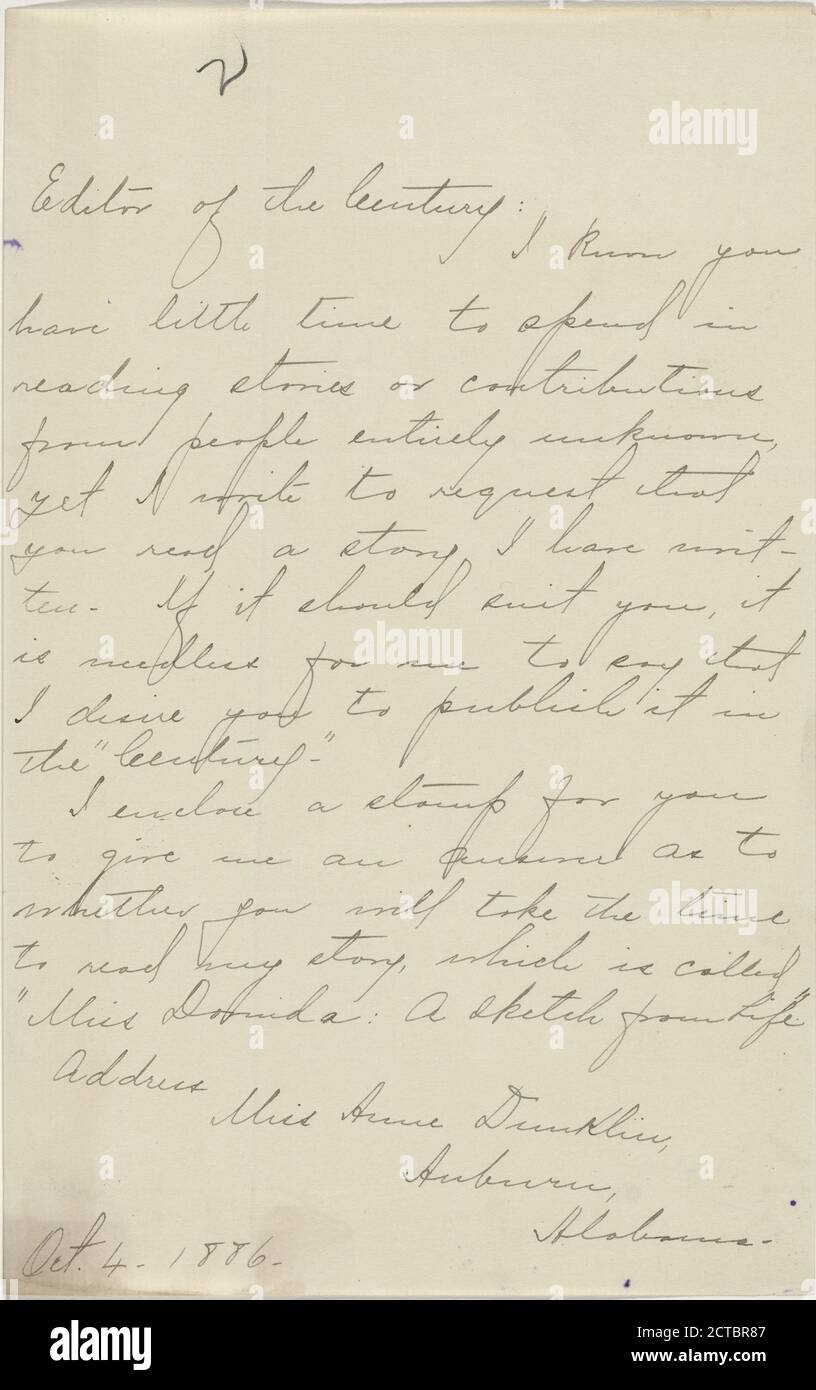 2
Editor of the Century:
I know you
have little time to spend in
reading stories or contributions
from people entirely unknown,
yet I write to request that
you read a story I have writ-
ten. If it should suit you, it
is needless for me to say that
I desire you to publish it in
the "Century."
I enclose a stamp for you
to give me an answer as to
whether you will take the time
to read my story, which is called
"Miss Dorinda: A sketch from Life"
Address
Miss Anne Dunklin,
Auburn,
Alabama.
Oct. 4 - 1886 -
alamy
Image ID: 2CTBR87
www.alamy.com